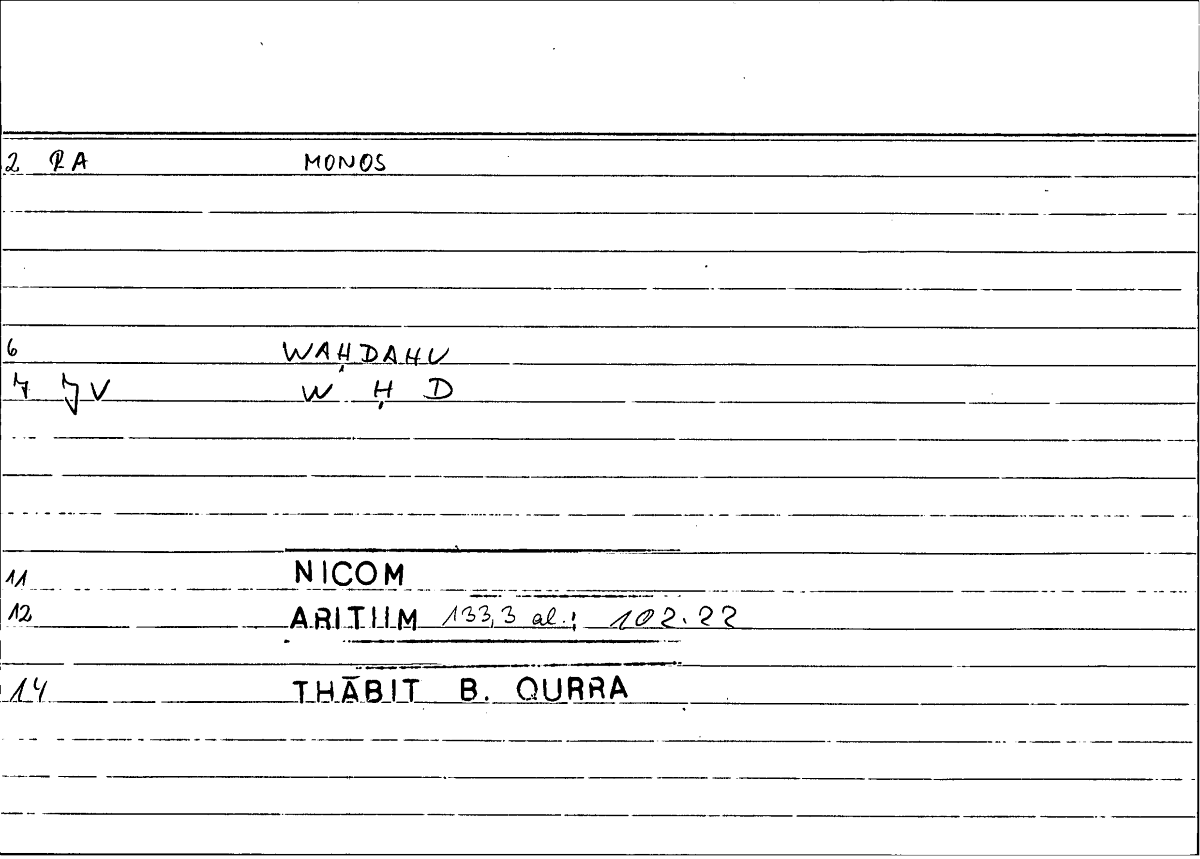 2 RA MONOS
6 WAḤDAHU
7 JV W Ḥ D
11 NICOM
12 ARITHM 133,3 al.; 102.22
14 THĀBIT B. QURRA